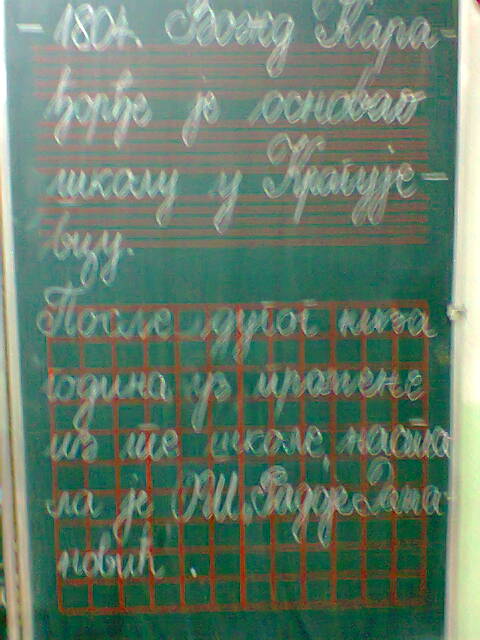 1804. Вожд Кара-
ђорђе је основао
школу у Крагује-
вцу.
После дугог низа
година уз промене
из те школе, наста
ла је ОШ „Радоје Дома
новић".